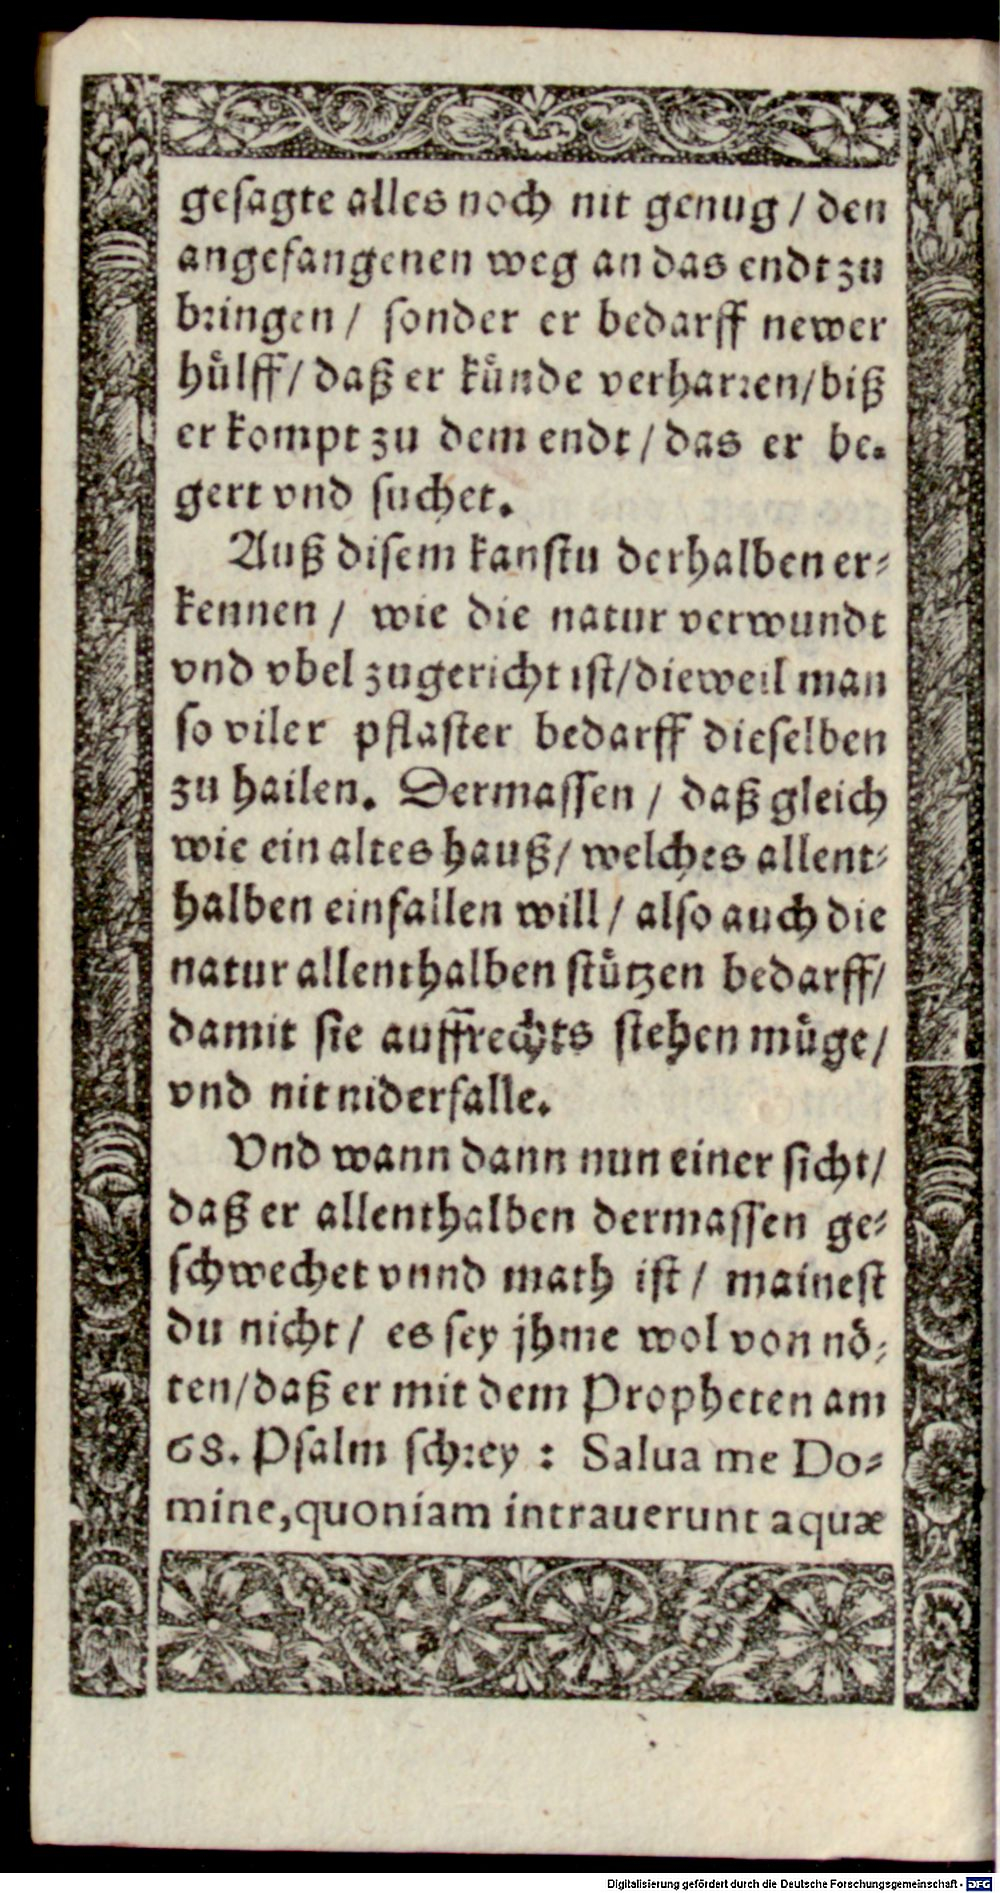 gesagte alles noch nit genug / den
angefangenen weg an das endt zu
bringen / sonder er bedarff newer
hülff / daß er künde verharren / biß
er kompt zu dem endt / das er be-
gert vnd suchet.
Auß disem kanstu derhalben er-
kennen / wie die natur verwundt
vnd vbel zugericht ist / dieweil man
so viler pflaster bedarff dieselben
zu hailen. Dermassen / daß gleich
wie ein altes hauß / welches allent-
halben einfallen will / also auch die
natur allenthalben stützen bedarff /
damit sie auffrechts stehen müge /
vnd nit niderfalle.
Vnd wann dann nun einer sicht /
daß er allenthalben dermassen ge-
schwechet vnnd math ist / mainest
du nicht / es sey jhme wol von nö-
ten / daß er mit dem Propheten am
68. Psalm schrey : Salua me Do-
mine, quoniam intrauerunt aquæ
Digitalisierung gefördert durch die Deutsche Forschungsgemeinschaft - DFG